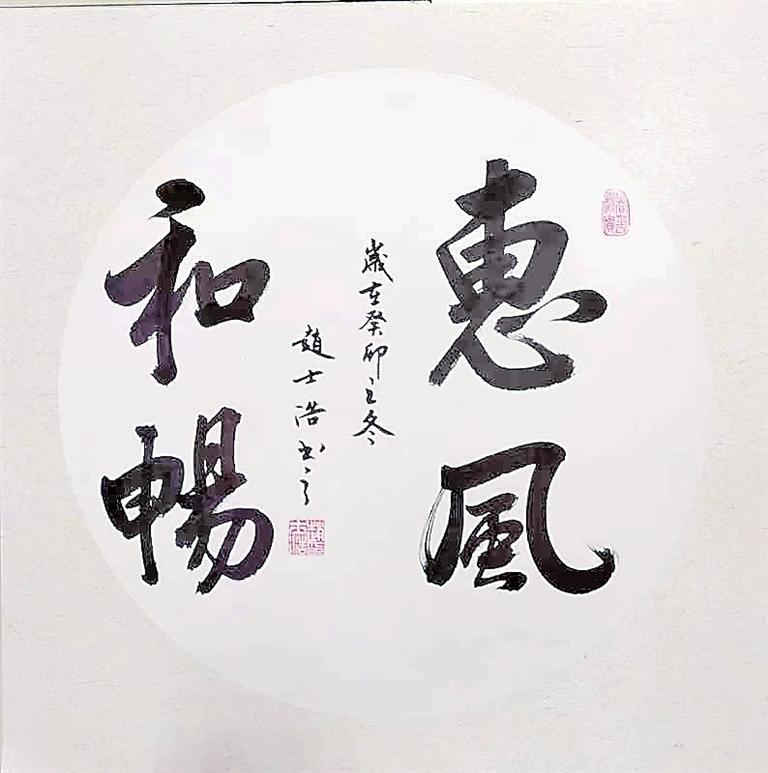 惠風
和暢
歲在癸卯之冬
趙士浩书之